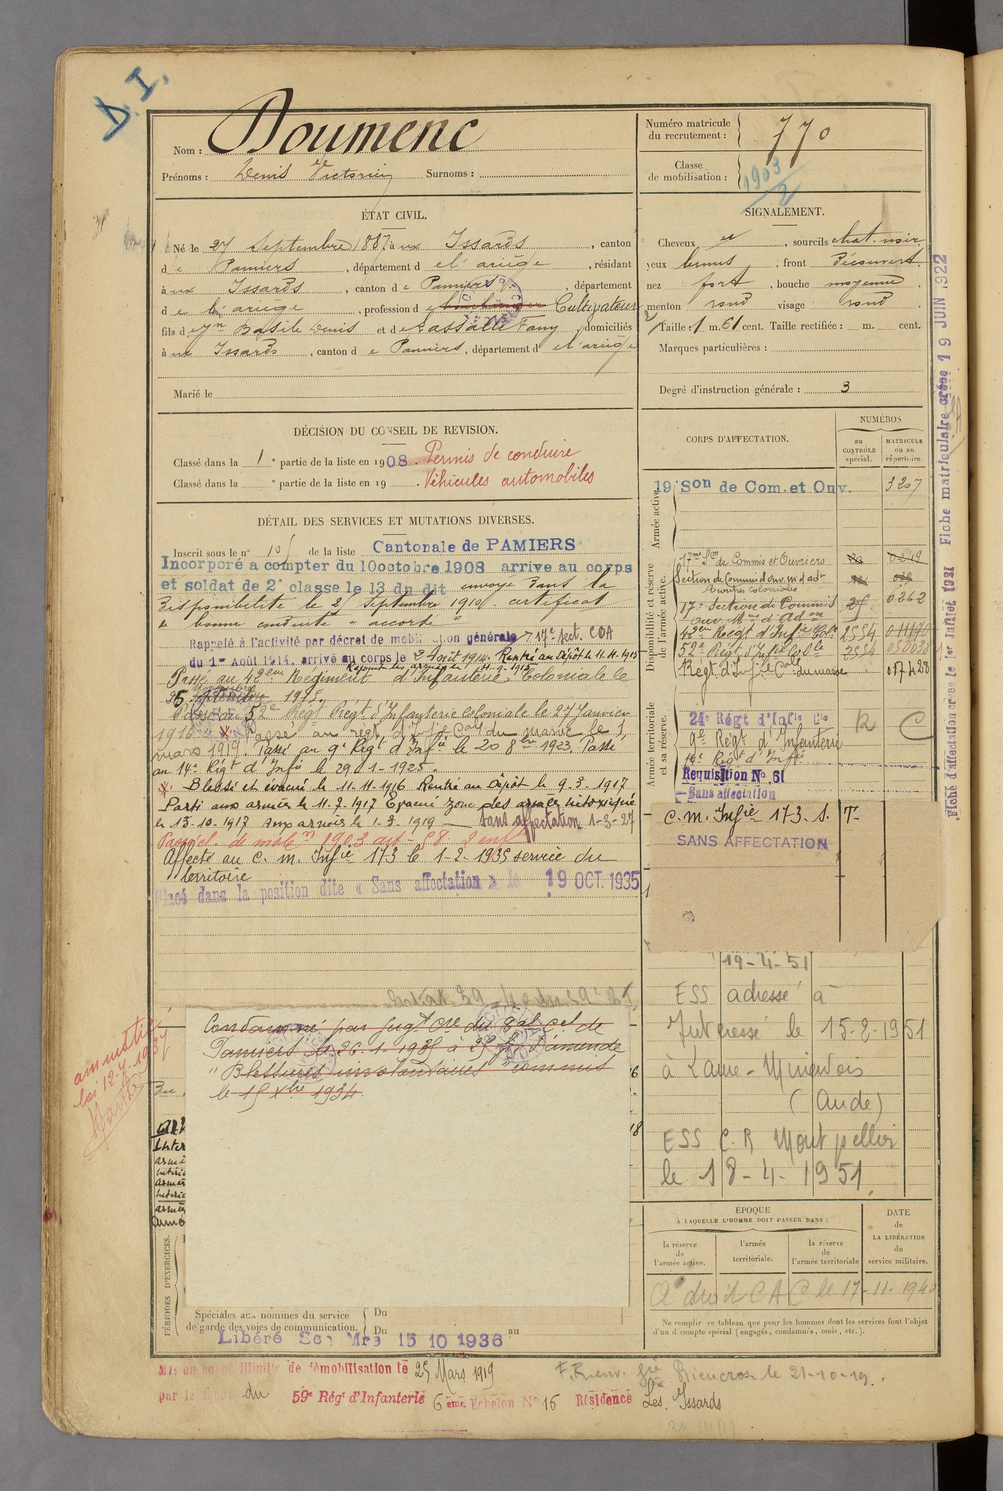 D. I.
Nom : Doumenc
Prénoms : Denis Victorin Surnoms :
Numéro matricule du recrutement : 770
Classe de mobilisation : 1903/2
ÉTAT CIVIL.
Né le 27 Septembre 1887 à ux Issards , canton
d e Pamiers , département d e l'ariège , résidant
à ux Issards , canton d e Pamiers , département
d e l'ariège , profession d e Cultivateur
fils d e Basile Denis et d e Lassalle Fany , domiciliés
à ux Issards , canton d e Pamiers , département d e l'ariège
Marié le
SIGNALEMENT.
Cheveux et , sourcils chat. noir
yeux bruns , front Découvert
nez fort , bouche moyenne
menton rond visage rond
Taille : 1 m. 61 cent. Taille rectifiée : m. cent.
Marques particulières :
Degré d'instruction générale : 3
DÉCISION DU CONSEIL DE REVISION.
Classé dans la 1 e partie de la liste en 1908. Permis de conduire
Classé dans la e partie de la liste en 19 . Véhicules automobiles
DÉTAIL DES SERVICES ET MUTATIONS DIVERSES.
Inscrit sous le n° de la liste Cantonale de PAMIERS
Incorporé a compter du 10 octobre 1908 arrive au corps
et soldat de 2e classe le 13 du dit envoyé dans la
Disponibilité le 25 Septembre 1910. certificat
de bonne conduite " accordé "
Rappelé à l'activité par décret de mobilisation générale 17e Sect. COA
du 1er Août 1914, arrivé au corps le 2 Août 1914. Rentré au Dépôt le 11.11.1915
Passé au 42eme Régiment d'Infanterie Coloniale le
25 1915.
Passé au 52e Régt d'Infanterie Coloniale le 27 Janvier
1916. x Passé au régt d'Inf. Cole du maroc le 1
mars 1919. Passé au 9e Régt d'Infie le 20 8bre 1923. Passé
au 14e Régt d'Infie le 29-1-1925.
x Blessé et évacué le 11.11.1916 Rentré au Dépôt le 9.3.1917
Parti aux armées le 11.7.1917 Evacué zone des armées intoxiqué
le 13-10-1917 aux armées le 1.3.1919 — Sans affectation 1-3-27
Passé cl. de mob. 1903 art. 58. 2 enf.
Affecté au C. m. Infie 173 le 1-2-1935 service du
territoire
Placé dans la position dite « Sans affectation » le 19 OCT. 1935
Condamné par jugt Cre du de
Pamiers le 26.1.1935 à 25 fr d'amende
" Blessures involontaires " commis
le 15 Xbre 1934
amnistié
loi 12-7-1937
CORPS D'AFFECTATION.
NUMÉROS
au CONTRÔLE spécial.
MATRICULE ou au répertoire.
Armée active
19 Son de Com. et Ouv. 3207
Disponibilité et réserve de l'armée active.
17me Son de Commis et Ouvriers
Section de Commis d'ouv. m. d'adon
Ouvriers coloniales
17e Section de Commis 25 0262
ouv. Mre d'Adon
42eme Regt d'Infie Cole 2554
52e Régt d'Infie Colle 2554
Régt. d'Infie Cole du maroc
Armée territoriale et sa réserve.
24e Régt d'Infie Cle R C
9e Régt d'Infanterie
14e Régt d'Infie
Requisition No 61
Sans affectation
C. m. Infie 173. S. T.
SANS AFFECTATION
19-4-51
ESS adressé à
Intéressé le 15-2-1951
à Laure-Minervois
(Aude)
ESS C.R Montpellier
le 18-4-1951.
ÉPOQUE
À LAQUELLE L'HOMME DOIT PASSER DANS :
la réserve de l'armée active.
l'armée territoriale.
la réserve de l'armée territoriale
DATE de LA LIBÉRATION du service militaire.
A droit C A C le 17-11-1940
Ne remplir ce tableau que pour les hommes dont les services font l'objet
d'un décompte spécial (engagés, condamnés, omis, etc.).
PÉRIODES D'EXERCICES.
Spéciales aux hommes du service de garde des voies de communication.
Du
Du au
Libéré Ser Mre 15 10 1936
Mis en congé illimité de démobilisation le 25 Mars 1919
par le dépôt du 59e Régt d'Infanterie 6ème Echelon No 16 Résidence Les Issards
le 21-10-19.
Fiche matriculaire créée 19 JUIN 1922
Fiche d'affectation créée le 1er Juillet 1931